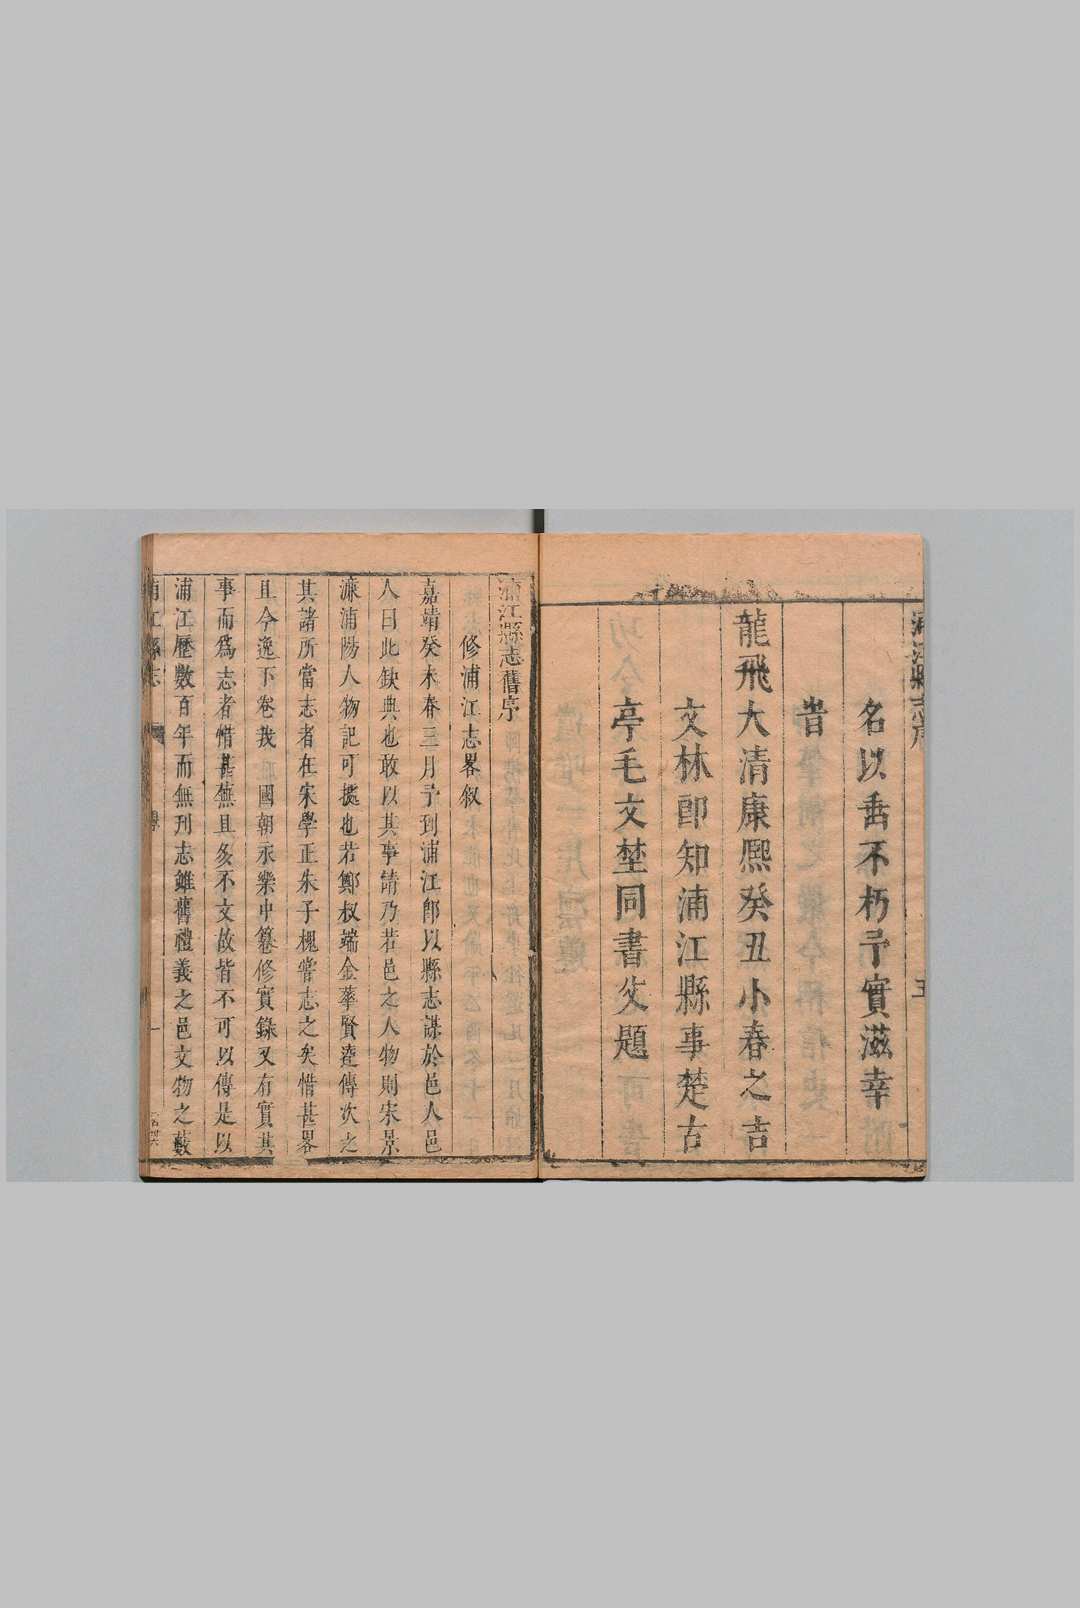 名以垂不朽予實滋幸
昔
龍飛大清康熙癸丑小春之吉
文林郎知浦江縣事楚古
亭毛文埜同書父題
浦江縣志舊序
修浦江志畧叙
嘉靖癸未春三月予到浦江郎以縣志謀於邑人邑
人曰此缺典也敢以其事請乃若邑之人物則宋景
濂浦陽人物記可攄也若鄭叔端金華賢達傳次之
其諸所當志者在宋學正朱子槐嘗志之矣惜甚畧
且今逸下卷我國朝永樂中纂修實錄又有實其
事而爲志者惜甚蕪且多不文故皆不可以傳是以
浦江歷數百年而無刊志雖舊禮義之邑文物之藪
浦江縣志